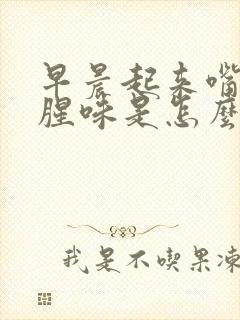 早晨起来嘴
腥味是怎麼
我是不喫果凍